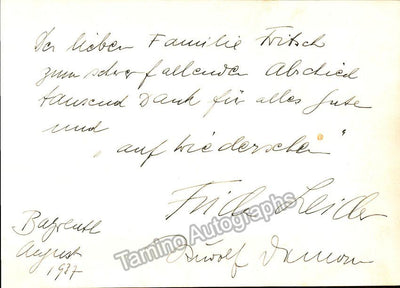 Der lieben Familie Fritsch
zum schwerfallenden Abschied
tausend Dank für alles Gute
und
„auf Wiedersehen"
Frida Leider
Bayreuth
August
1937
Rudolf Deman
Tamino Autographs